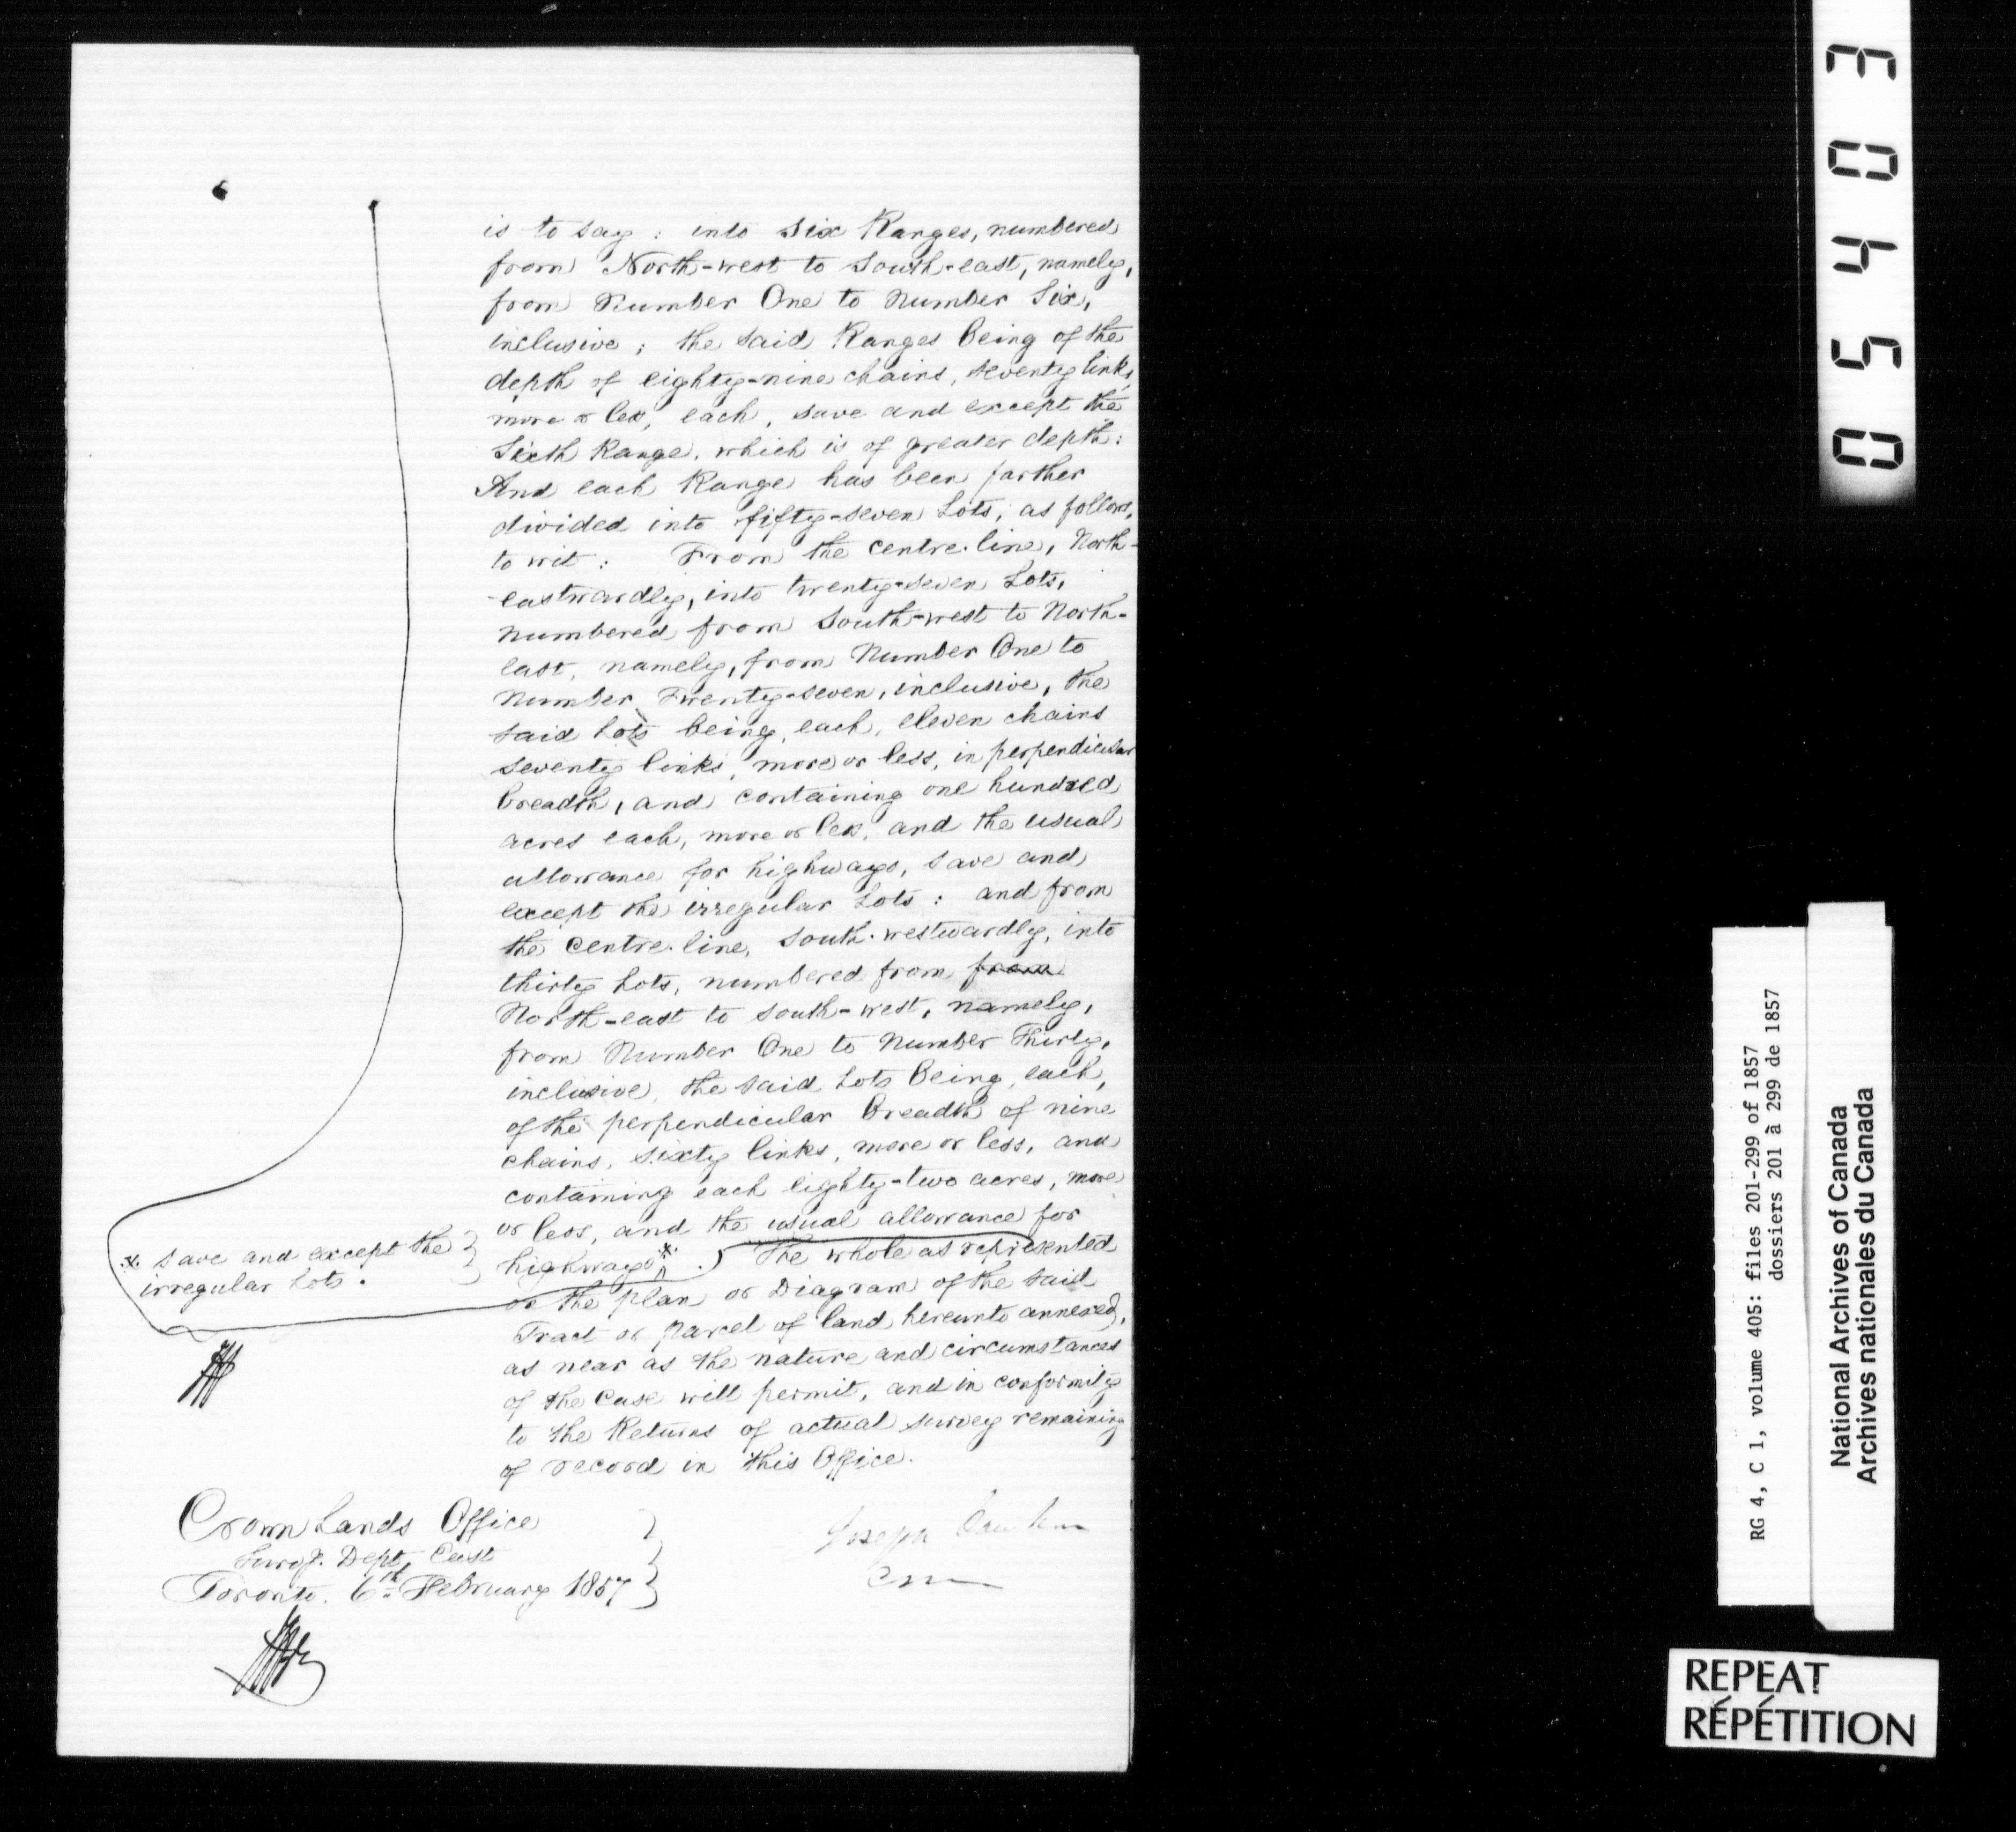 is to say : into Six Ranges, numbered
from North-west to South-east, namely,
from Number One to Number Six,
inclusive ; the said Ranges being of the
depth of eighty-nine chains, seventy links
more or less, each, save and except the
Sixth Range, which is of greater depth :
And each Range has been farther
divided into fifty-seven Lots, as follows,
to wit : From the centre-line, North-
eastwardly, into twenty-seven Lots,
numbered from South-west to North-
east, namely, from Number One to
Number Twenty-seven, inclusive, the
said Lots being, each, eleven chains
seventy links, more or less, in perpendicular
breadth, and containing one hundred
acres each, more or less, and the usual
allowance for highways, save and
except the irregular Lots : and from
the centre-line, South-westwardly, into
thirty Lots, numbered from from
North-east to South-west, namely,
from Number One to Number Thirty,
inclusive, the said Lots being, each,
of the perpendicular breadth of nine
chains, sixty links, more or less, and
containing each eighty-two acres, more
or less, and the usual allowance for
highways * . The whole as represented
on the plan or Diagram of the said
Tract or parcel of land hereunto annexed,
as near as the nature and circumstances
of the Case will permit, and in conformity
to the Returns of actual survey remaining
of record in this Office.
* save and except the
irregular Lots.
Crown Lands Office
Dept. East
Toronto. 6th February 1857
Joseph
05403
RG 4, C 1, volume 405: files 201-299 of 1857
dossiers 201 à 299 de 1857
National Archives of Canada
Archives nationales du Canada
REPEAT
RÉPÉTITION